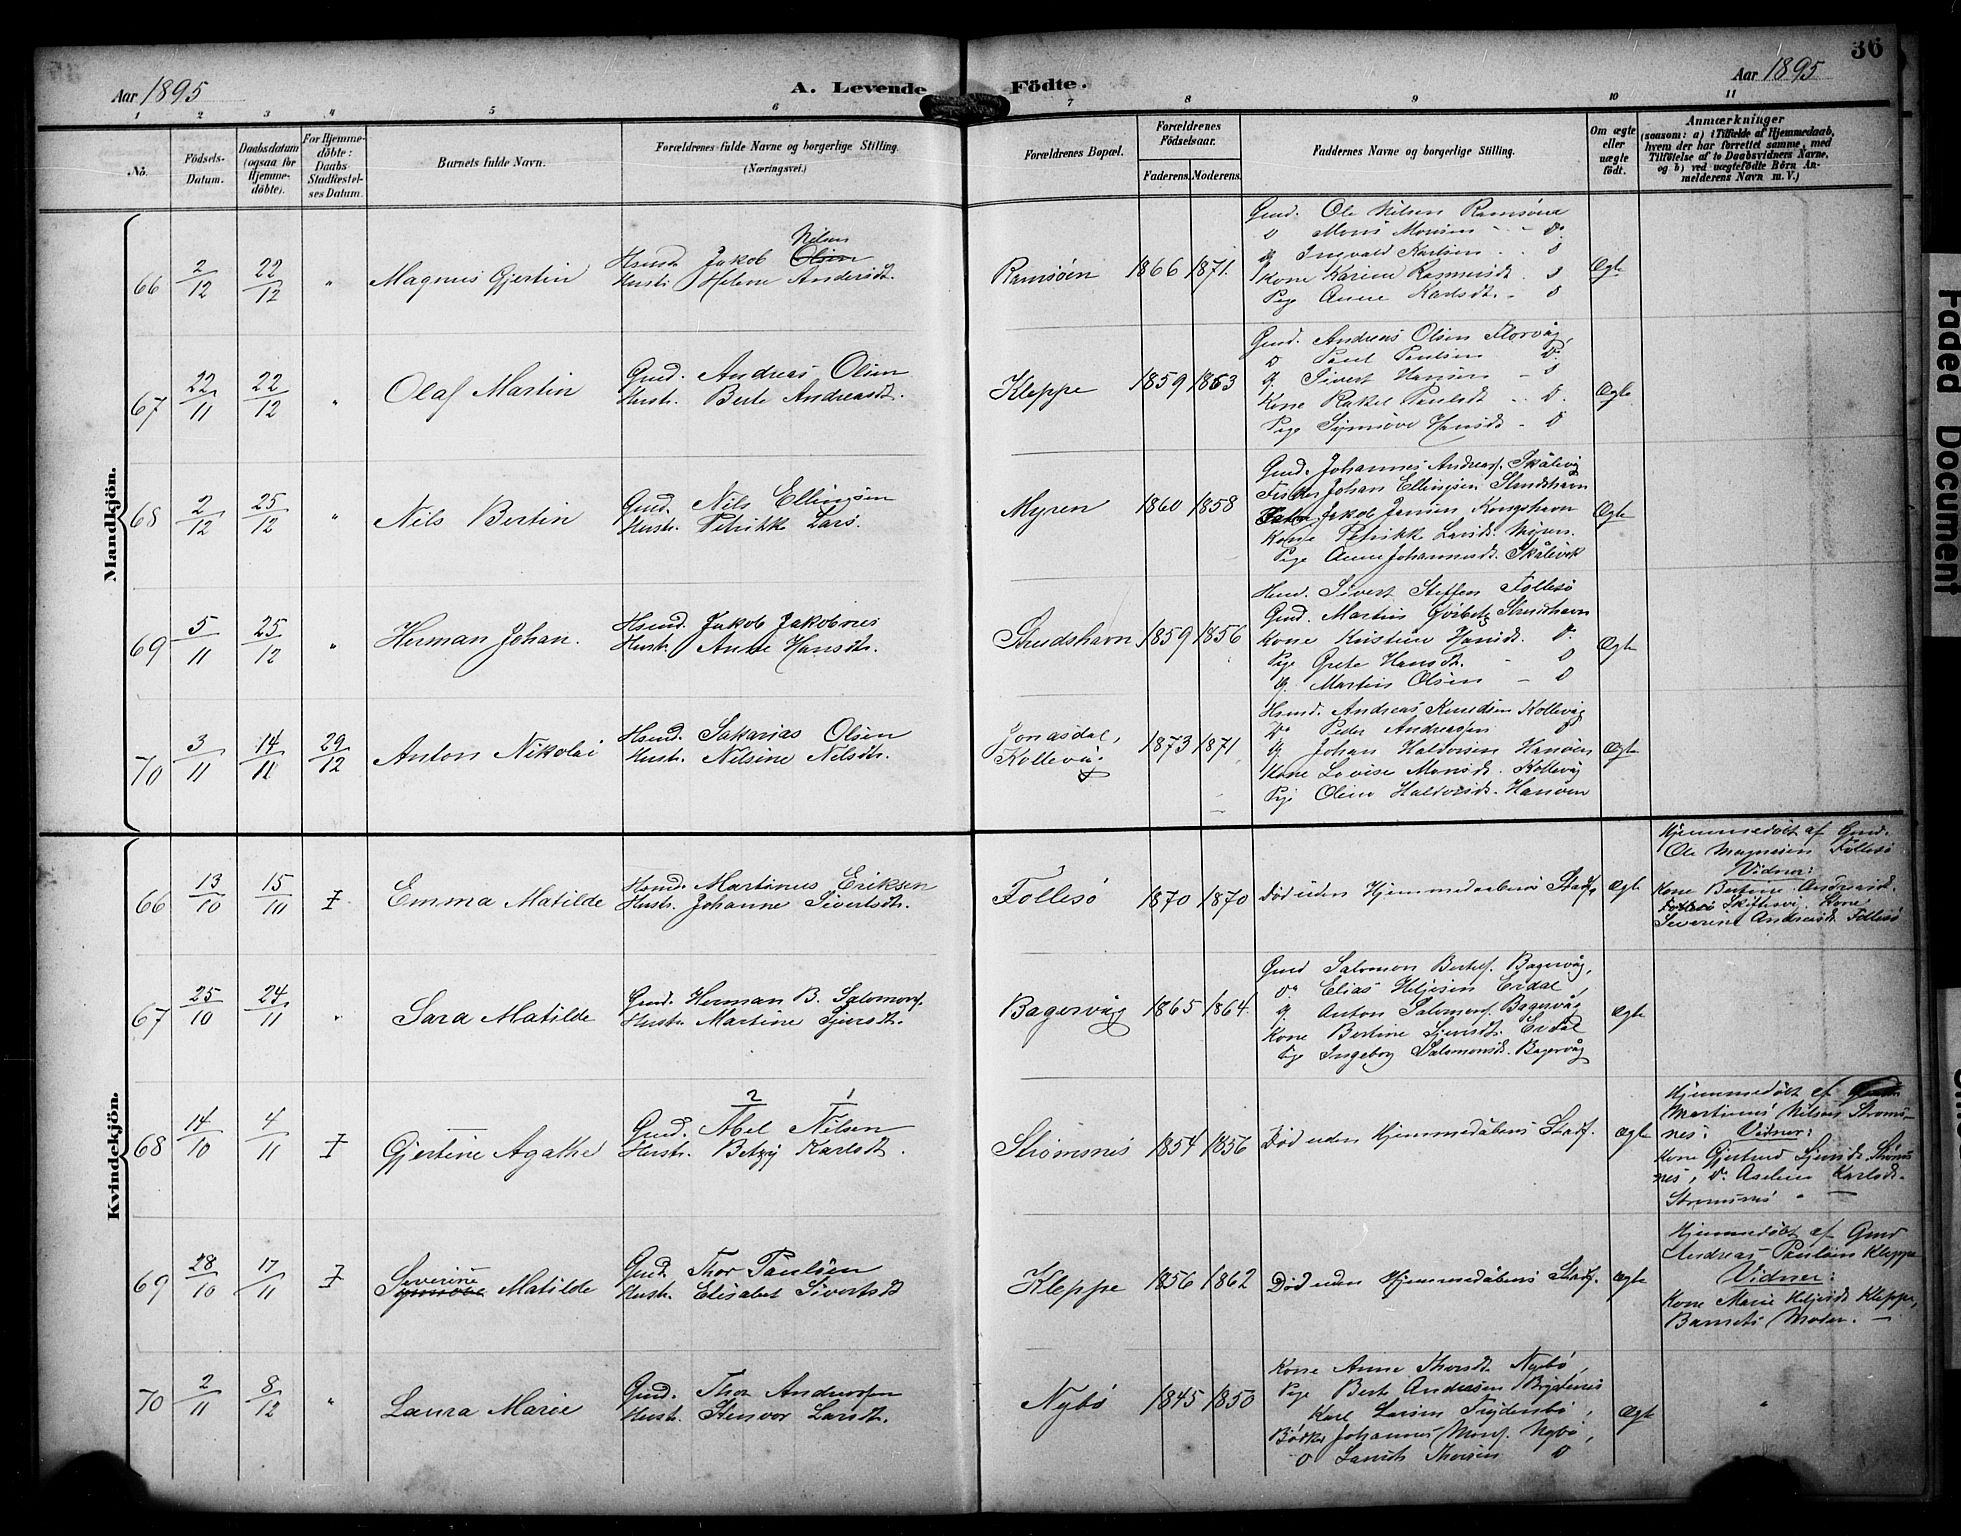 36
Aar 1895
A. Levende
Födte.
Aar 1895
1 2 3 4 5 6 7 8 9 10 11
No.
Födsels-
Datum.
Daabsdatum
(ogsaa for
Hjemme-
döbte).
For Hjemme-
döbte:
Daabs-
Stadfæstel-
ses Datum.
Barnets fulde Navn.
Forældrenes fulde Navne og borgerlige Stilling.
(Næringsvei.)
Forældrenes Bopæl.
Forældrenes
Födselsaar.
Faderens. Moderens.
Faddernes Navne og borgerlige Stilling.
Om ægte
eller
uægte
födt.
Anmærkninger
(saasom: a) i Tilfælde af Hjemmedaab,
hvem der har forrettet samme, med
Tilföielse af to Daabsvidners Navne,
og b) ved uægtefödte Börn An-
melderens Navn m. V.)
Mandkjön.
66
2/12
22/12
"
Magnus Gjertin
Nilsen
Hsmd. Jakob Olsen
Hustr. Helene Andersdt.
Ramsöen
1866 1871.
Gmd. Ole Nilsen Ramsöen
Mons Monsen
Ingvald Karlsen
Kone Karine Rasmusdt.
Pige Anne Karlsdt.
Ægte
67
22/11
22/12
"
Olaf Martin
Gmd. Andreas Olsen
Hustr. Berte Andreasdt.
Kleppe
1859 1863
Gmd. Andreas Olsen Florvåg,
Poul Paulsen
Sivert Hansen
Kone Rakel Paulsdt
Pige Synnöve Hansdt
Ægte
68
2/12
25/12
"
Nils Bertin
Gmd. Nils Ellingsen
Hustr. Petrikke Lars.
Myren
1860 1858
Gmd. Johannes Andreas. Skålevig
Fisker Johan Ellingsen Strudshavn
Jakob Jansen Kongshavn
Kone Petrikke Larsdt. Myren.
Pige Anne Johannesdt. Skålevik
Ægte
69
5/11
25/12
"
Herman Johan.
Hsmd. Jakob Jakobsen
Hustr. Anne Hansdt.
Strudshavn
1859 1856
Hsmd. Sivert Steffen Follesö
Gmd. Martin Strudshavn
Kone Kristine Hansdt.
Pige Grete Hansdt.
Martin Olsen
Ægte
70
3/11
14/11
29/12
Anton Nikolai
Hsmd. Sakarias Olsen
Hustr. Nilsine Nilsdtr.
Jonasdal,
Kollevåg
1873 1871
Hsmd. Andreas Knudsen Kollevåg
Do Peder Andreasen
Johan Haldorsen Hanöen
Kone Lovise Monsdt. Kollevåg
Pige Oline Haldorsdt. Hanöen
Ægte
Kvindekjön.
66
13/10
15/10
Emma Matilde
Hsmd. Martinus Eriksen
Hustr. Johanne Sivertsdtr.
Follesö
1870 1870
Död uden Hjemmedaabens Stadf.
Ægte
Hjemmedöbt af Gmd.
Ole Magnesen Follesö
Vidner:
Kone Bertine Andreasdt.
Follesö Skiftesvig. Kone
Severine Andreasdt. Follesö
67
25/10
24/11
"
Sara Matilde
Gmd. Herman B. Salomonsf.
Hustr. Martine Sjursdt.
Bagersvåg
1865 1864.
Gmd Salomon Bertels. Bagervåg,
Do Elias Heljesen Eidal,
Anton Salomons. Bagervåg
Kone Bertine Sjursdt. Eidal
Pige Ingeborg Salomonsdt. Bagervåg
Ægte
68
14/10
4/11
Gjertine Agathe
2 1
Gmd. Abel Nilsen
Hustr. Betzy Karlsdt.
Strömsnes
1854 1856
Död uden Hjemmedåbens Stadf.
Ægte
Hjemmedöbt af
Martinus Nilsen Stroms-
nes. Vidner:
Kone Gjertrud Sjursdt. Ströms
nes, Do Aseline Karlsdt.
Stromsnes
69
28/10
17/11
Severine
Synnöve Matilde
Gmd. Thor Paulsen
Hustr. Elisabet Sivertsdt
Kleppe
1856 1862
Död uden Hjemmedåbens Stadf.
Ægte
Hjemmedöbt af Gmd
Andreas Paulsen Kleppe
Vidner:
Kone Marie Heljesdt Kleppe,
Barnets Moder.
70
2/11
8/12
"
Laura Marie
Gmd. Thor Andersen
Hustr. Steinvor Larsdt.
Nybö
1845 1850
Kone Anne Thorsdt Nybö,
Pige Berte Andersen
Karl Larsen
Bödker Johannes Mons. Nybö,
Thorsen
Ægte
"
Faded Document